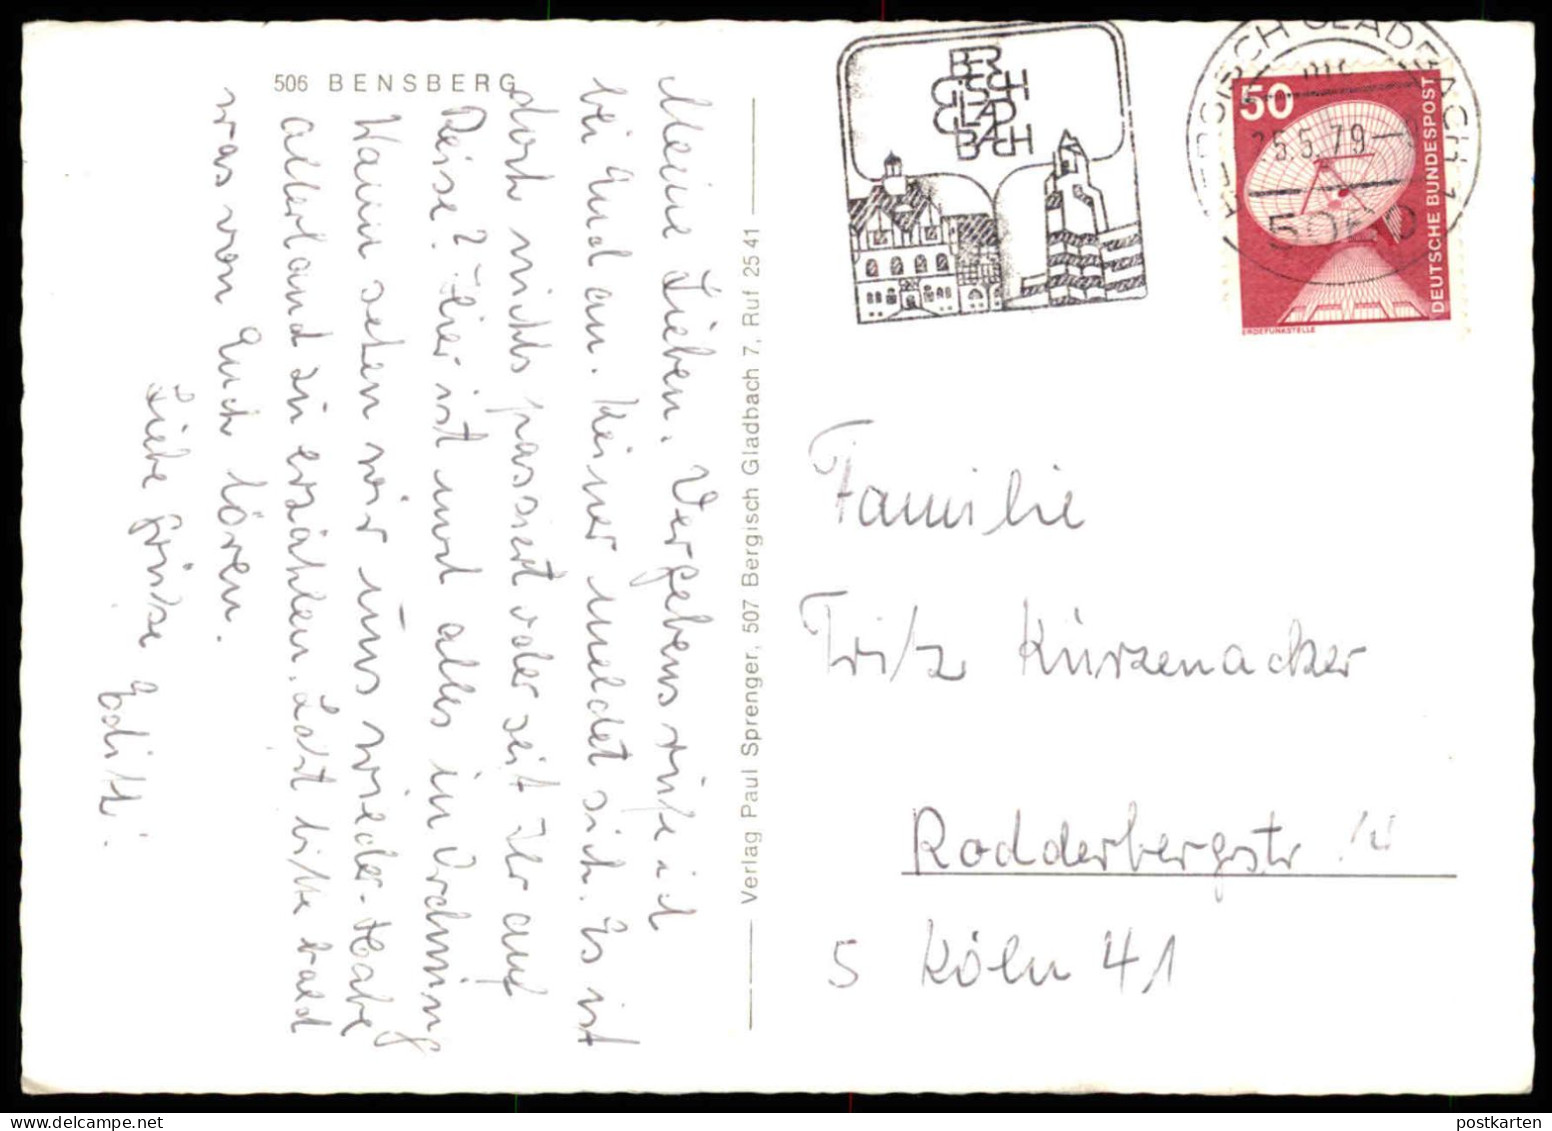 506 BENSBERG
Meine Lieben. Vergebens rufe ich
bei Euch an. Keiner meldet sich. Es ist
doch nichts passiert oder seit Ihr auf
Reise? Hier ist und alles in Ordnung
Wann sehen wir uns wieder. Habe
allerhand zu erzählen. Laßt bitte bald
was von Euch hören.
Liebe Grüße
Edith.
Verlag Paul Sprenger, 507 Bergisch Gladbach 7, Ruf 25 41
BER
GISCH
GLAD
BACH
BERGISCH GLADBACH 1
25.5.79
5060
50
DEUTSCHE BUNDESPOST
ERDEFUNKSTELLE
Familie
Fritz Kürzenacker
Rodderbergstr
5 Köln 41
postkarten